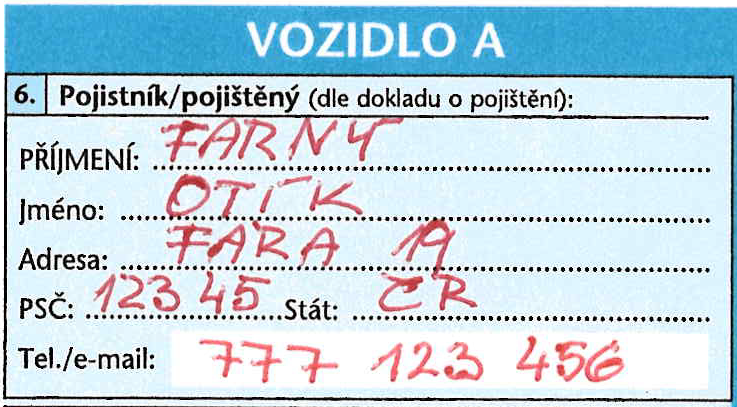 VOZIDLO A
6. Pojistník/pojištěný (dle dokladu o pojištění):
PŘÍJMENÍ: FARNÝ
Jméno: OTÍK
Adresa: FARA 19
PSČ: 123 45 Stát: ČR
Tel./e-mail: 777 123 456